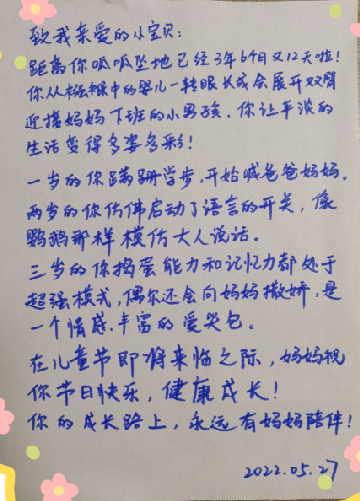 致我亲爱的小宝贝：
距离你呱呱坠地已经3年6个月又12天啦！
你从襁褓中的婴儿一转眼长成会展开双臂
迎接妈妈下班的小男孩。你让平淡的
生活变得多姿多彩！
一岁的你蹒跚学步，开始喊爸爸妈妈。
两岁的你仿佛启动了语言的开关，像
鹦鹉那样模仿大人说话。
三岁的你捣蛋能力和记忆力都处于
超强模式，偶尔还会向妈妈撒娇，是
一个情感丰富的爱哭包。
在儿童节即将来临之际，妈妈祝
你节日快乐，健康成长！
你的成长路上，永远有妈妈陪伴！
2022.05.27